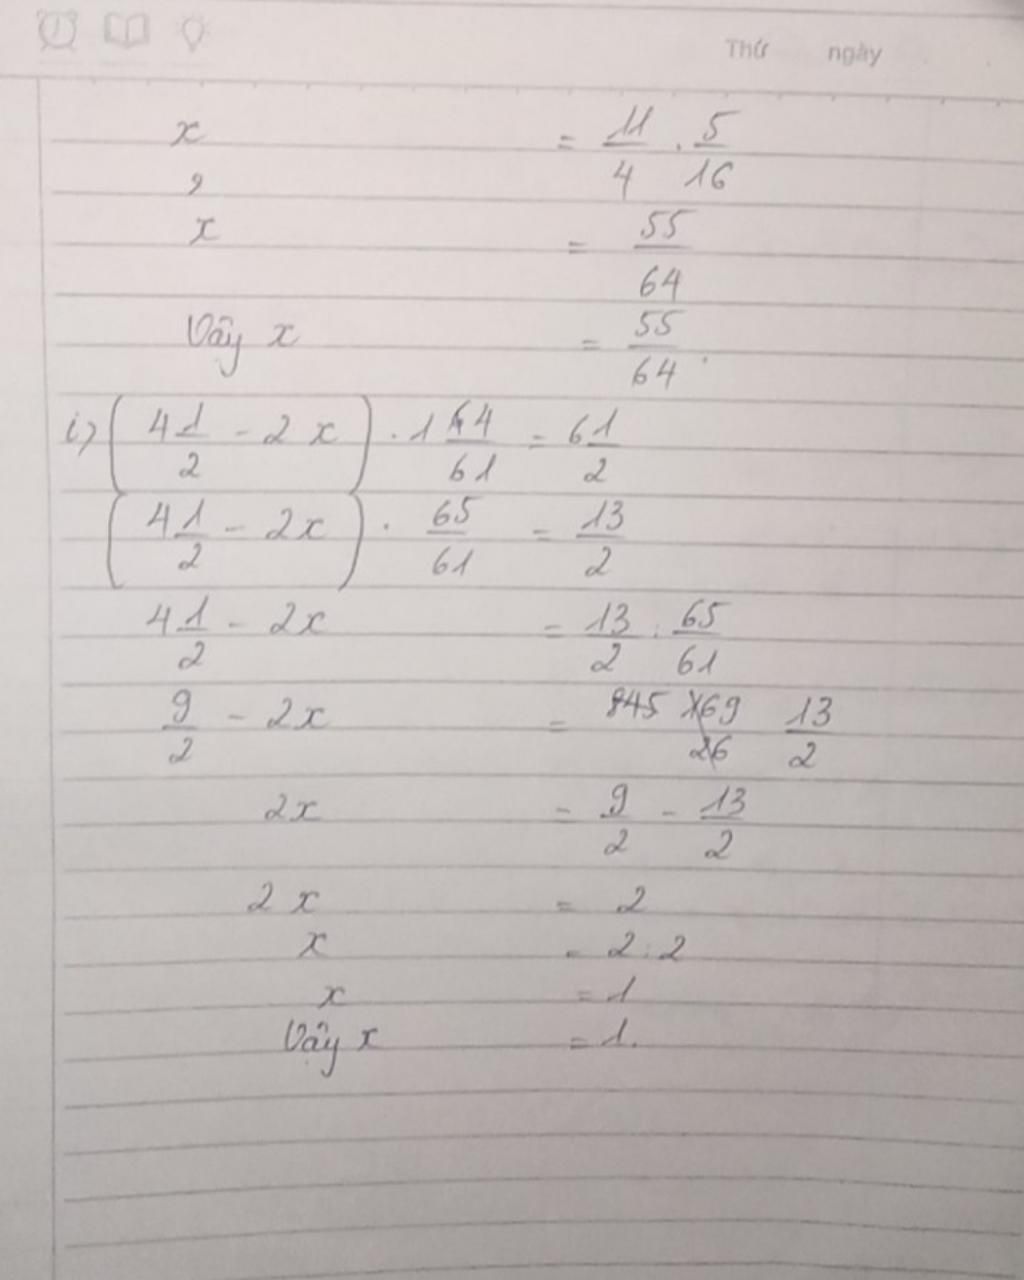 Thứ ngày
x = 11/4 . 5/16
x = 55/64
Vậy x = 55/64.
i) (4 1/2 - 2x) . 1 4/61 = 6 1/2
(4 1/2 - 2x) . 65/61 = 13/2
4 1/2 - 2x = 13/2 : 65/61
9/2 - 2x = 845 169/26 13/2
2x = 9/2 - 13/2
2x = 2
x = 2 : 2
x = 1
Vậy x = 1.